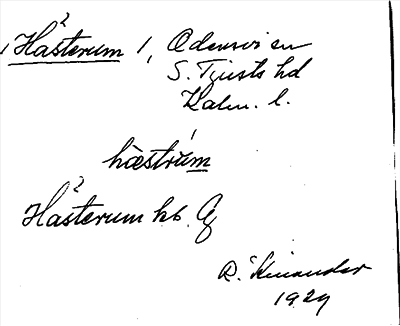 Hasterum 1, Odensvi sn
S. Tjusts hd
Kalm. l.
hæstrum
Hasterum hb.
R. Kinander
1929